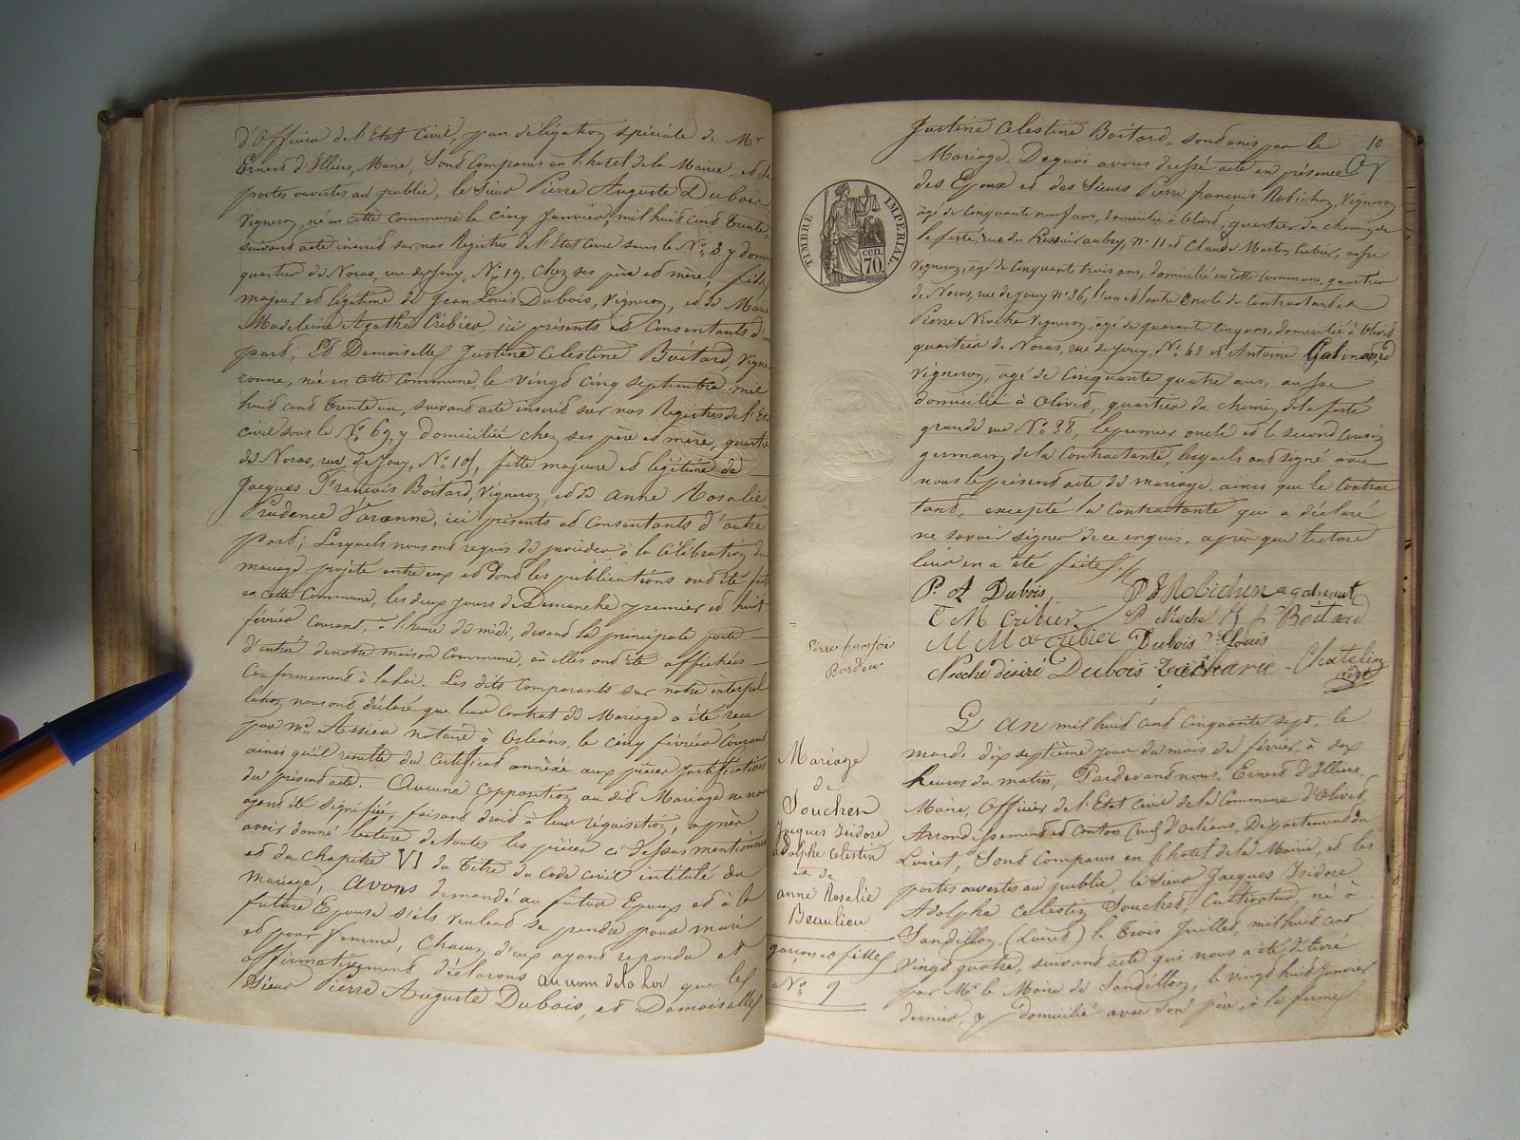 d'Officier de l'Etat Civil, par délégation spéciale de Mr
Ernest d'Illiers, Maire, Sont Comparus en l'hotel de la Mairie, et les
portes ouvertes au public, le Sieur Pierre Auguste Dubois
Vigneron, né en cette Commune le cinq Janvier, mil huit cent trente,
suivant acte inscrit sur nos Registres de l'Etat Civil sous le No 3 y domi
quartier de Noras, rue de Jouy, No 19, chez ses père et mère, fils
majeur et légitime de Jean Louis Dubois, Vigneron, et de Marie
Madeleine Agathe Cribier ici présents et Consentants d'
part, Et Demoiselle Justine Celestine Boitard, Vigne
ronne, née en cette Commune le vingt cinq septembre mil
huit cent trente un, suivant acte inscrit sur nos Registres de l'Et
civil sous le No 69, y domiciliée chez ses père et mère, quartier
de Noras, rue de Jouy, No 10, fille majeure et légitime de
Jacques François Boitard, Vigneron, et de Anne Rosalie
Prudence Varenne, ici présents et Consentants d'autre
part; Lesquels nous ont requis de procéder à la Célébration du
mariage projeté entre eux et dont les publications ont été faites
en cette Commune, les deux jours de Dimanche premier et huit
février Courant, à l'heure de midi, devant la principale porte
d'entrée de notre maison Commune, où elles ont été affichées
Conformément à la loi. Les dits Comparants sur notre interpel
lation nous ont déclaré que leur Contrat de Mariage a été reçu
par Me Assier notaire à Orléans, le cinq février Courant
ainsi qu'il résulte du Certificat annexé aux pièces justificatives
du présent acte. Aucune opposition au dit Mariage ne nous
ayant été signifiée, faisant droit à leur réquisition, après
avoir donné lecture de toutes les pièces ci dessus mentionnées
et du Chapitre VI du titre du Code Civil intitulé du
mariage, avons demandé au futur Epoux et à la
future Epouse s'ils veulent se prendre pour mari
et pour femme, Chacun d'eux ayant répondu et
affirmativement déclarons au nom de la loi que le
Sieur Pierre Auguste Dubois, et Demoiselle
10
Justine Celestine Boitard, sont unis par le
Mariage. De quoi avons dressé acte en présence
des Epoux et des Sieurs Pierre françois Robichon, Vigneron
âgé de Cinquante neuf ans, domicilié à Olivet, quartier du chemin de
la ferté, rue du Pressoir aubry, No 11 et Claude Martin Cribier, aussi
Vigneron, âgé de Cinquante trois ans, domicilié en cette Commune, quartier
de Noras, rue de Jouy No 36, l'un et l'autre Oncle du Contractant et
Pierre Nioche Vigneron, âgé de quarante cinq ans, domicilié à Olivet
quartier de Noras, rue de Jouy, No 68 et Antoine Galinand
Vigneron, âgé de Cinquante quatre ans, aussi
domicilié à Olivet, quartier du chemin de la ferté
grande rue No 38, le premier oncle et le second Cousin
germain de la Contractante, lesquels ont signé avec
nous le présent acte de mariage ainsi que le Contrac
tant, excepté la Contractante qui a déclaré
ne savoir signer de ce enquis, après que lecture
leur en a été faite
P. A Dubois, P F Robichon a galinant
C M Cribier P. Nioche J f Boitard
M M a cribier Dubois Louis
Nioche désiré Dubois Chatelin
TIMBRE IMPERIAL
70
Mariage
de
Souchet
Jacques Isidore
Adolphe Celestin
et de
Anne Rosalie
Beaulieu
garçon et fille
No 9
L'an mil huit cent cinquante sept, le
mardi dix septième jour du mois de février, à dix
heures du matin, Pardevant nous, Ernest d'Illiers,
Maire, Officier de l'Etat Civil de la Commune d'Olivet,
Arrondissement et Canton Sud d'Orléans, Département du
Loiret, Sont Comparus en l'hotel de la Mairie, et les
portes ouvertes au public, le Sieur Jacques Isidore
Adolphe Celestin Souchet, Cultivateur, né à
Sandillon (Loiret) le trois Juillet, mil huit cent
vingt quatre, suivant acte qui nous a été délivré
par Mr le Maire de Sandillon, le vingt huit Janvier
dernier, y domicilié avec son père, à la ferme